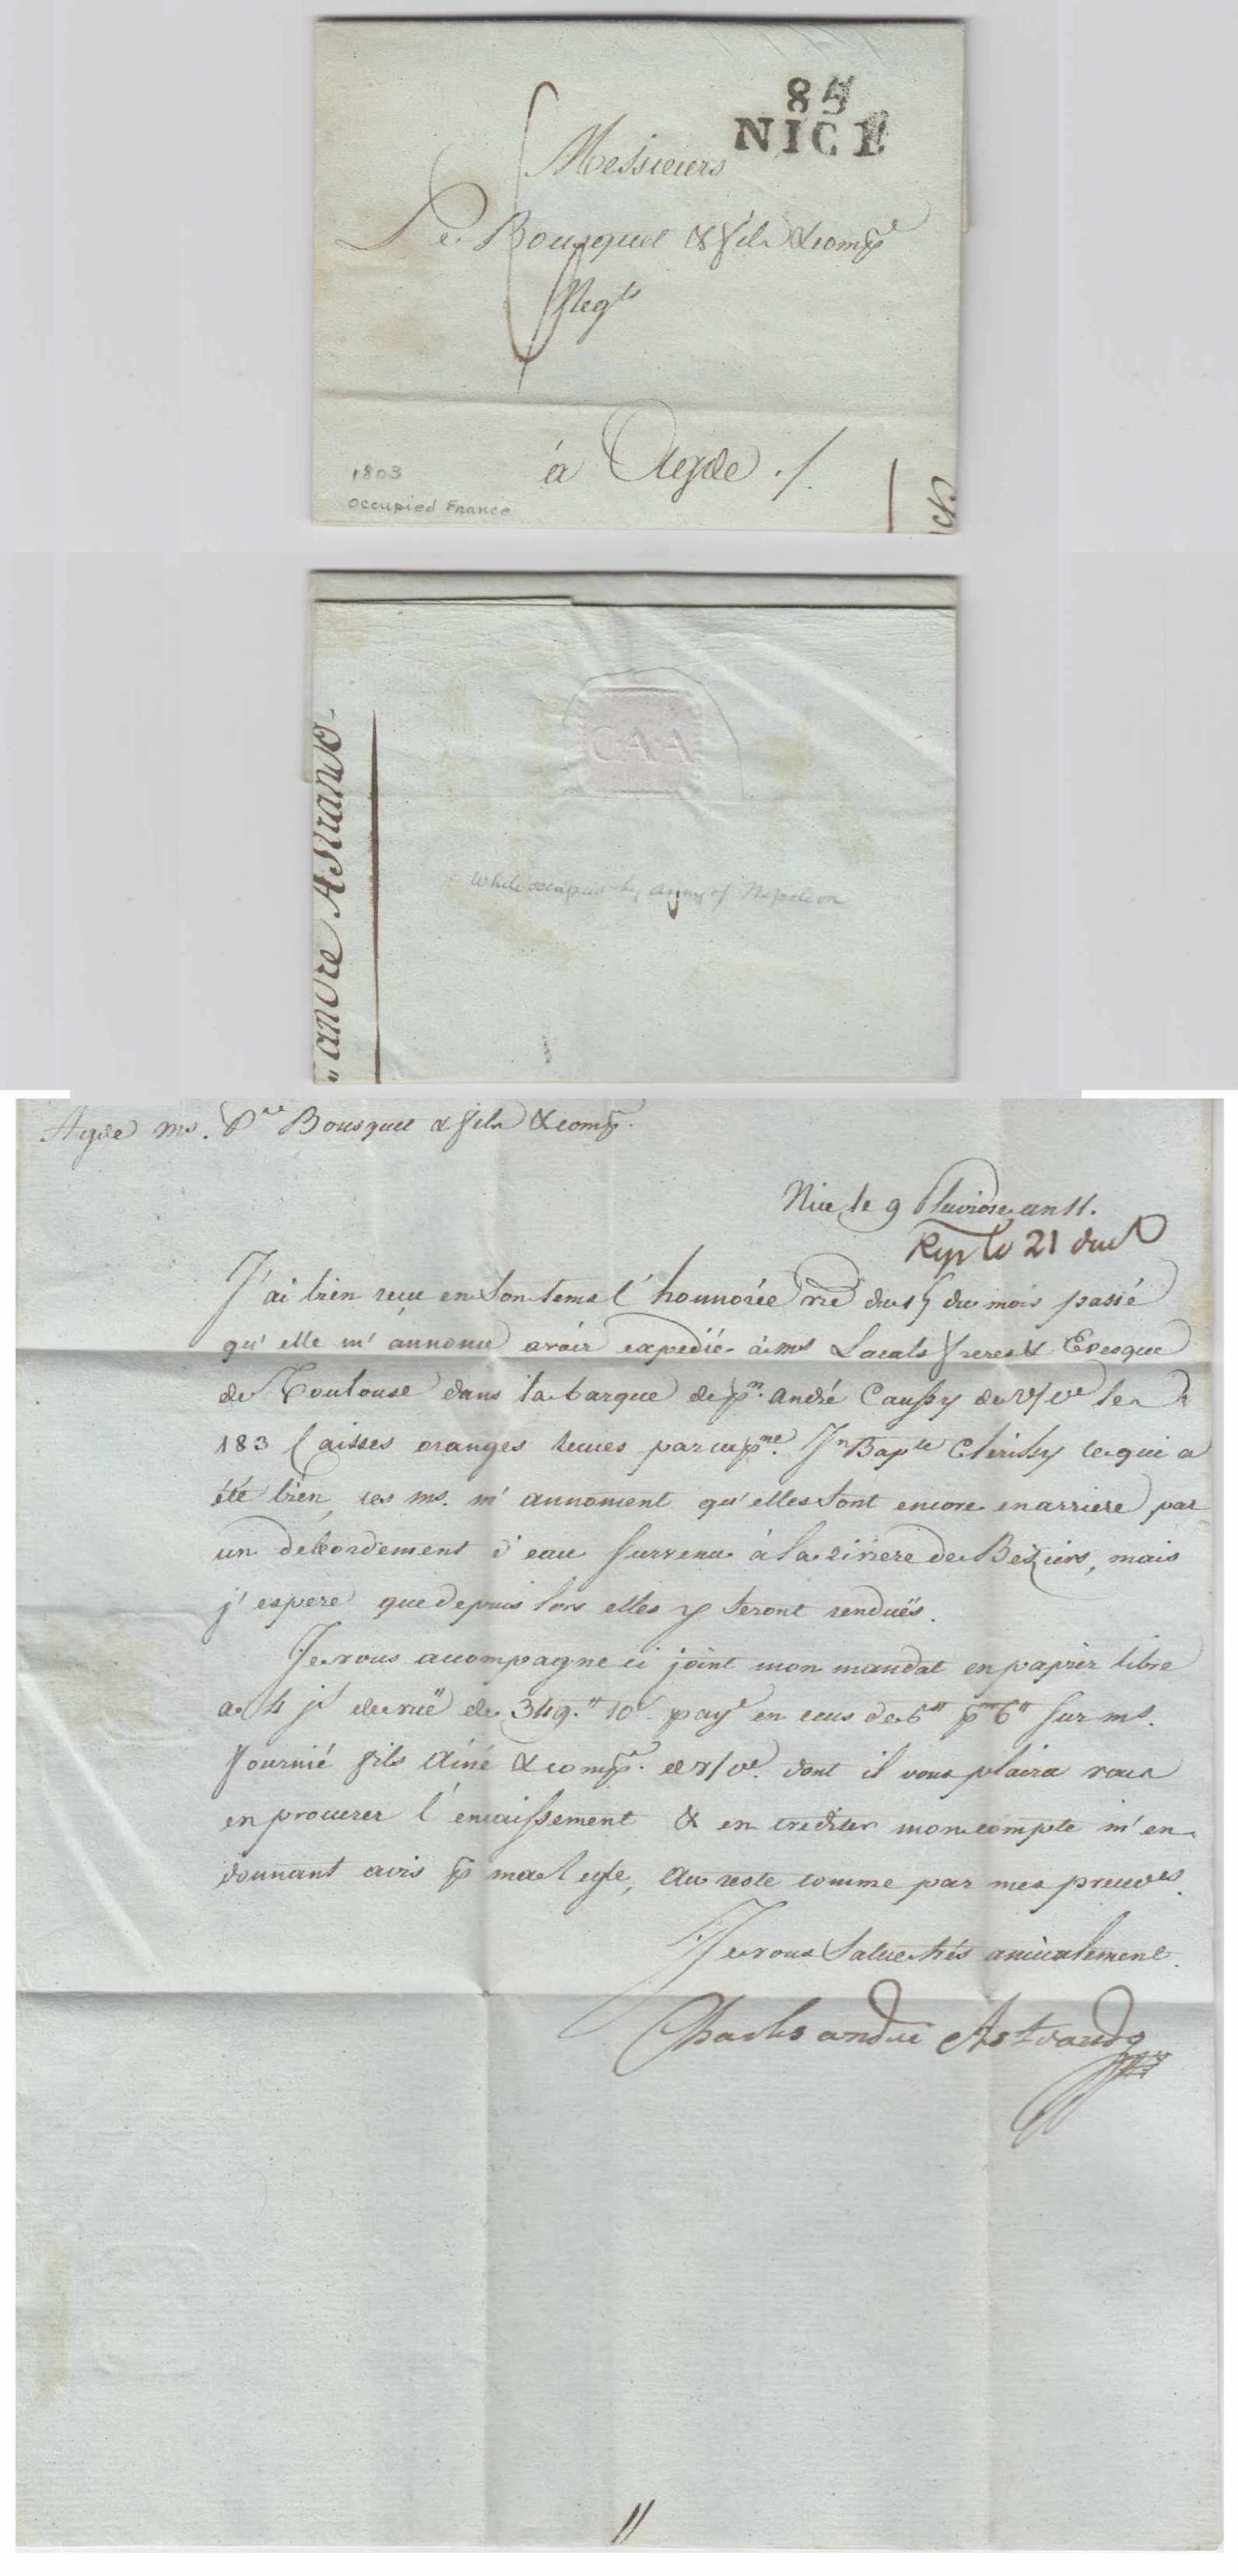 85
NICE
Messieurs
Pe. Bousquet & fils & compe
Negts
à Agde ./.
1803
Occupied France
CAA
andre Astraud
While occupied by Army of Napoleon
Agde ms. Pre Bousquet & fils & comp.
Nice le 9 Pluviose an 11.
Rep le 21 dud
J'ai bien reçu en son tems l'honnorée vre du 15 du mois passé
qu'elle m'annonce avoir expedié à ms Lacals freres & Evesque
de Toulouse dans la barque de pn. André Caussy de v/ve les
183 Caisses oranges reçues par cape. Jn Bapte Clerissy ce qui a
été bien, ces ms. m'annoncent qu'elles sont encore en arriere par
un debordement d'eau survenu à la riviere de Beziers, mais
j'espere que depuis lors elles y seront renduës.
Je vous accompagne ci joint mon mandat en papier libre
a 4 js de vuë de 349." 10s paye en ecus de 6" pr 6" sur ms.
fournié fils Ainé & compe. de v/ve. dont il vous plaira vous
en procurer l'encaissement & en crediter mon compte m'en
donnant avis p ma Regle, Au reste comme par mes preuves.
Je vous Salue très amicalement.
Charles andré Astraudo
11